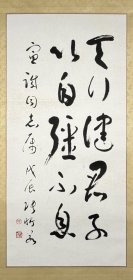 天行健君子
以自强不息
宝谢同志属 戊辰